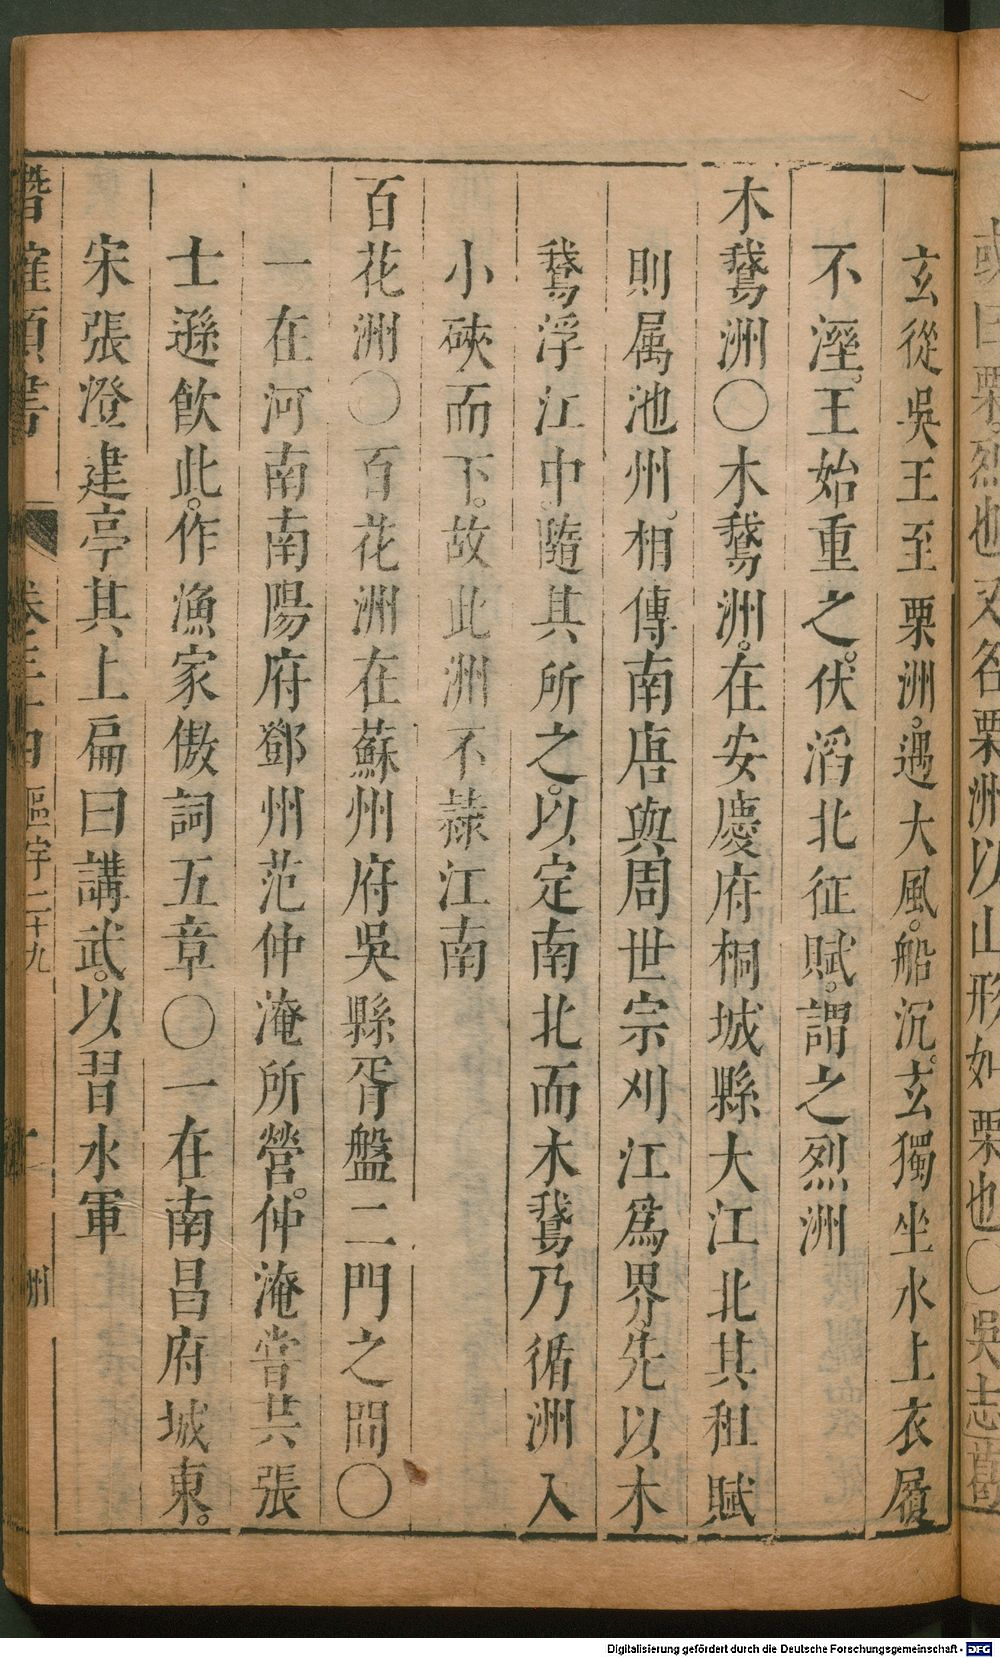 或曰栗烈也又名栗洲以山形如栗也〇吳志葛
玄從吳王至栗洲。遇大風。船沉。玄獨坐水上衣履
不溼。王始重之。伏滔北征賦。謂之烈洲
木鵞洲〇木鵞洲。在安慶府桐城縣大江北其租賦
則属池州。相傳南唐與周世宗刈江爲界。先以木
鵞浮江中。隨其所之。以定南北而木鵞乃循洲入
小硤而下。故此洲不隷江南
百花洲〇百花洲在蘇州府吳縣胥盤二門之間〇
一在河南南陽府鄧州范仲淹所營。仲淹嘗共張
士遜飲此。作漁家傲詞五章〇一在南昌府城東。
宋張澄建亭其上扁曰講武。以習水軍
潛確類書 卷三十四 區宇二十九 州
Digitalisierung gefördert durch die Deutsche Forschungsgemeinschaft - DFG